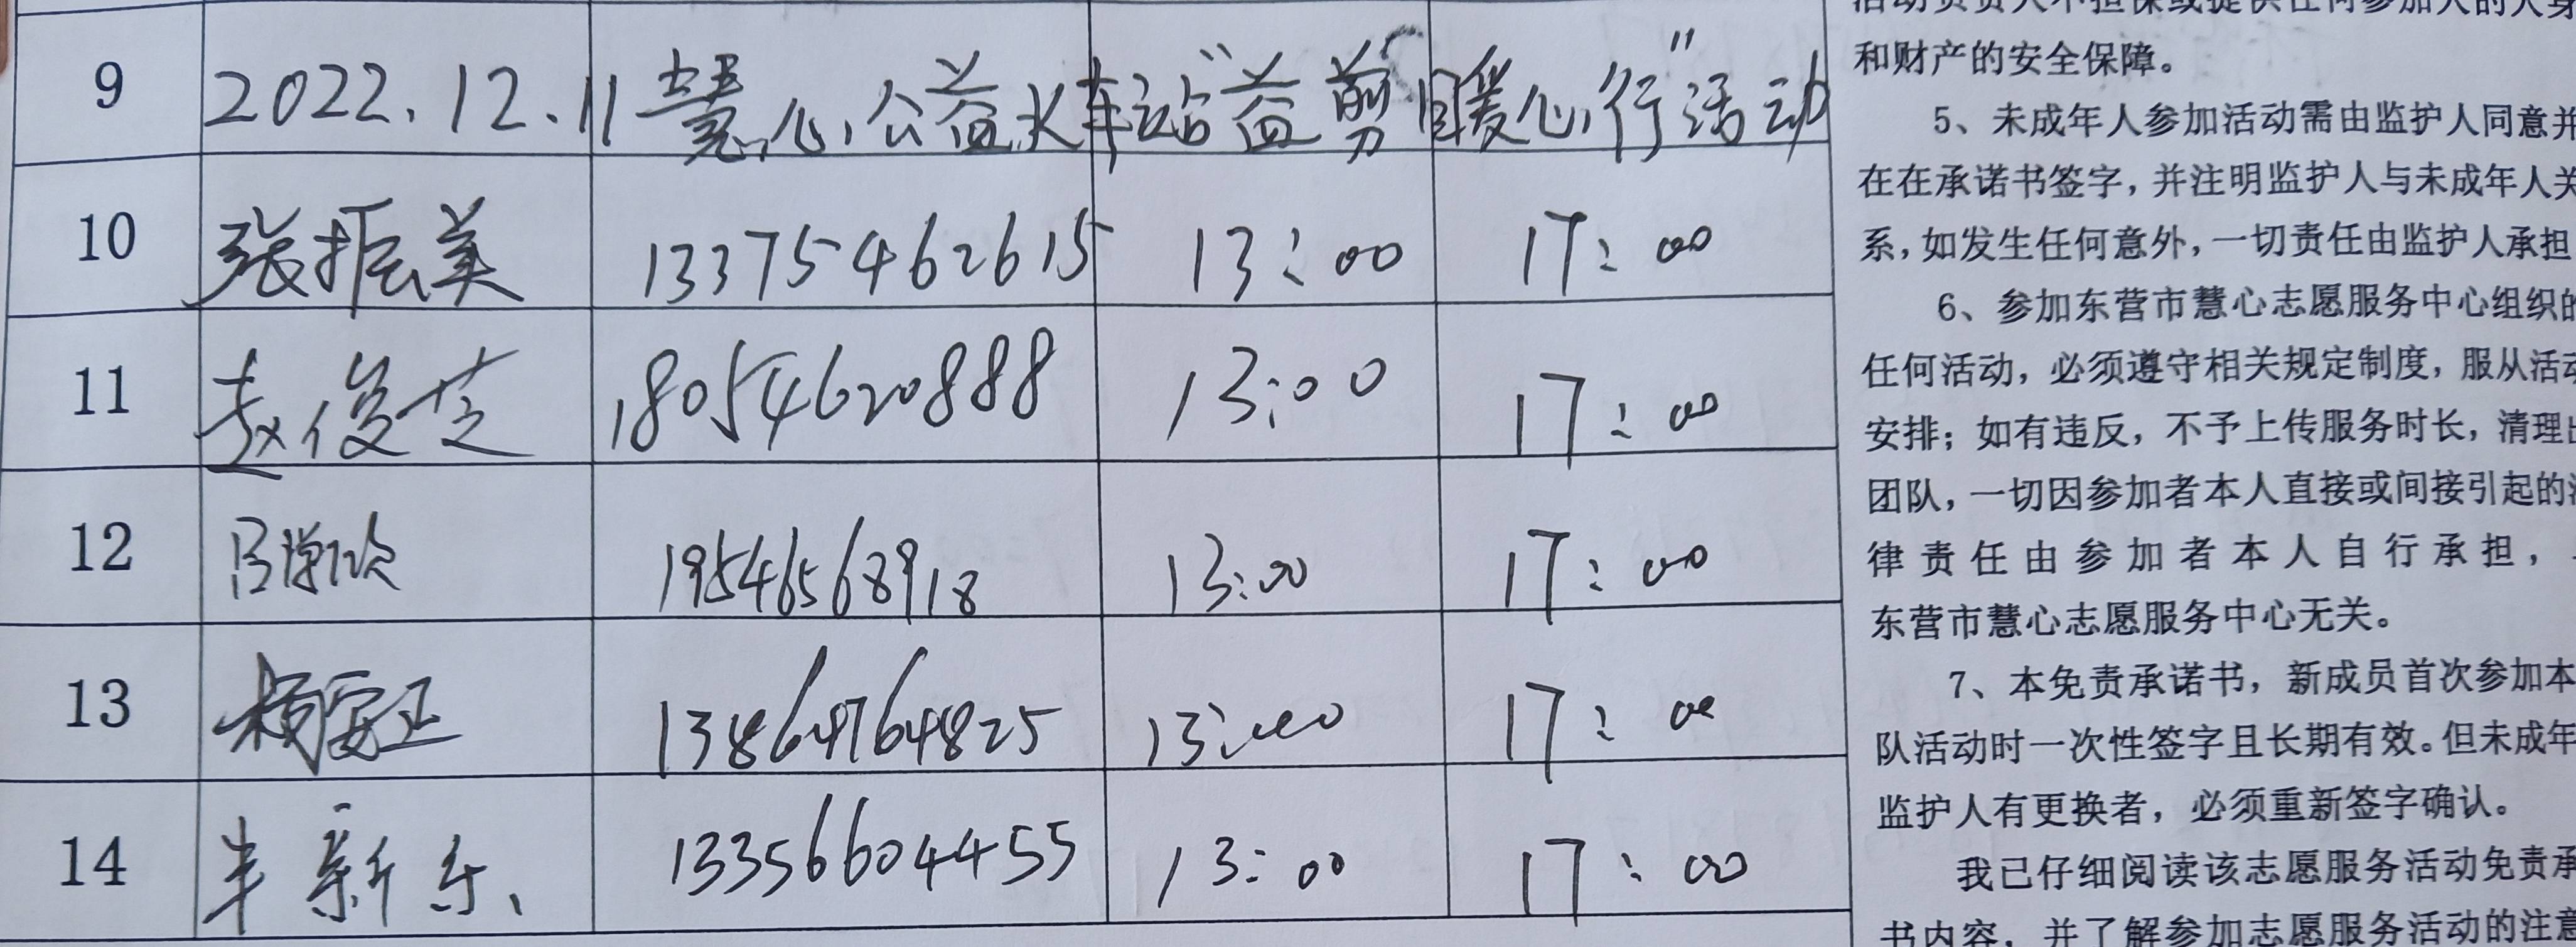 9 2022.12.11慧心公益火车站"益剪暖心行"活动
10 张振美 13375462615 13:00 17:00
11 赵俊芝 18054620888 13:00 17:00
12 19546568918 13:00 17:00
13 13864764825 13:00 17:00
14 新东 13356604455 13:00 17:00
活动负责人不担保或提供任何参加人的人身
和财产的安全保障。
5、未成年人参加活动需由监护人同意并
在在承诺书签字,并注明监护人与未成年人关
系,如发生任何意外,一切责任由监护人承担
6、参加东营市慧心志愿服务中心组织的
任何活动,必须遵守相关规定制度,服从活动
安排;如有违反,不予上传服务时长,清理出
团队,一切因参加者本人直接或间接引起的法
律责任由参加者本人自行承担,
东营市慧心志愿服务中心无关。
7、本免责承诺书,新成员首次参加本
队活动时一次性签字且长期有效。但未成年
监护人有更换者,必须重新签字确认。
我已仔细阅读该志愿服务活动免责承
书内容,并了解参加志愿服务活动的注意